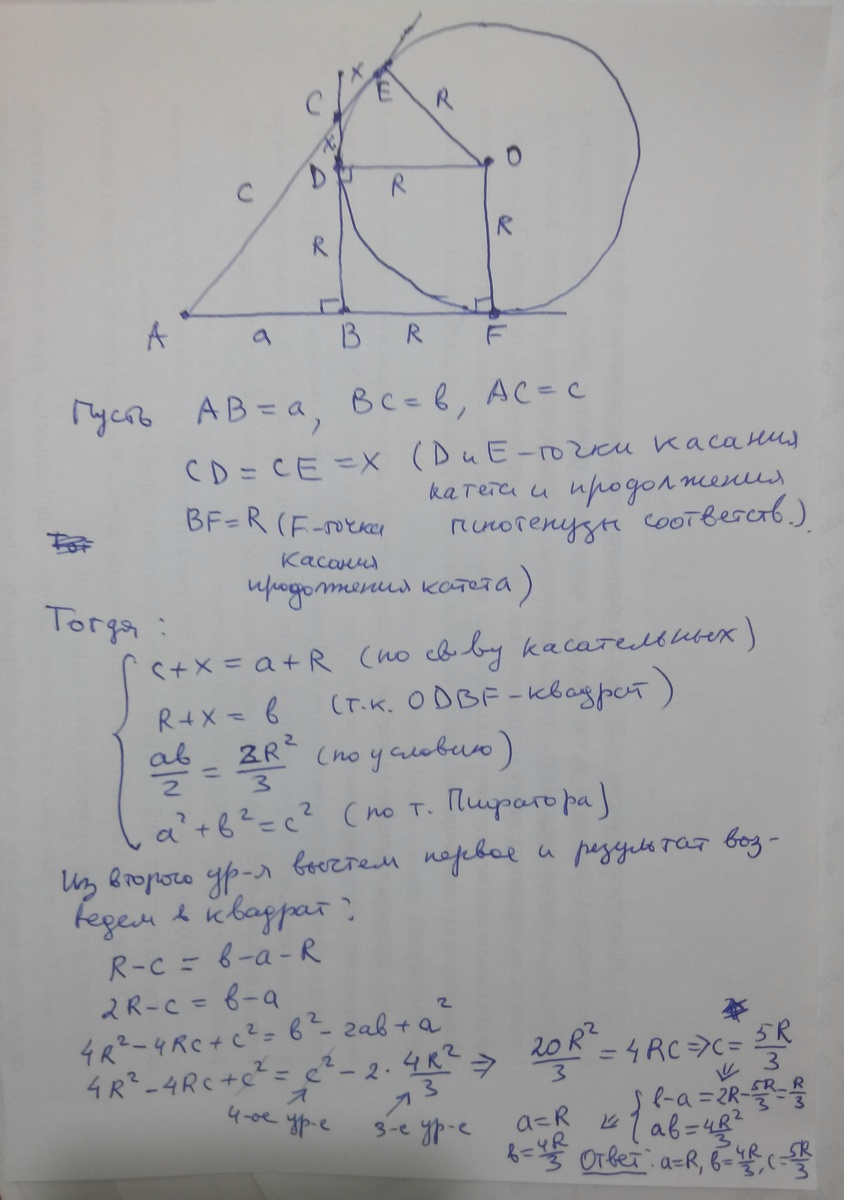 x
C
E
R
x
D
O
C
R
R
R
A
a
B
R
F
Пусть AB = a, BC = в, AC = c
CD = CE = X (D и E – точки касания
катета и продолжения
гипотенузы соответств.)
BF = R (F – точка
касания
продолжения катета)
Тогда :
c + x = a + R (по св-ву касательных)
R + x = в (т.к. ODBF – квадрат)
ав/2 = 2R²/3 (по условию)
a² + в² = c² (по т. Пифагора)
Из второго ур-я вычтем первое и результат воз-
ведем в квадрат:
R – c = в – a – R
2R – c = в – a
4R² – 4Rc + c² = в² – 2ав + a²
4R² – 4Rc + c² = c² – 2 · 4R²/3 ⇒ 20R²/3 = 4Rc ⇒ c = 5R/3
4-ое ур-е 3-е ур-е
в – a = 2R – 5R/3 = R/3
ав = 4R²/3
a = R
в = 4R/3
Ответ: a = R, в = 4R/3, c = 5R/3